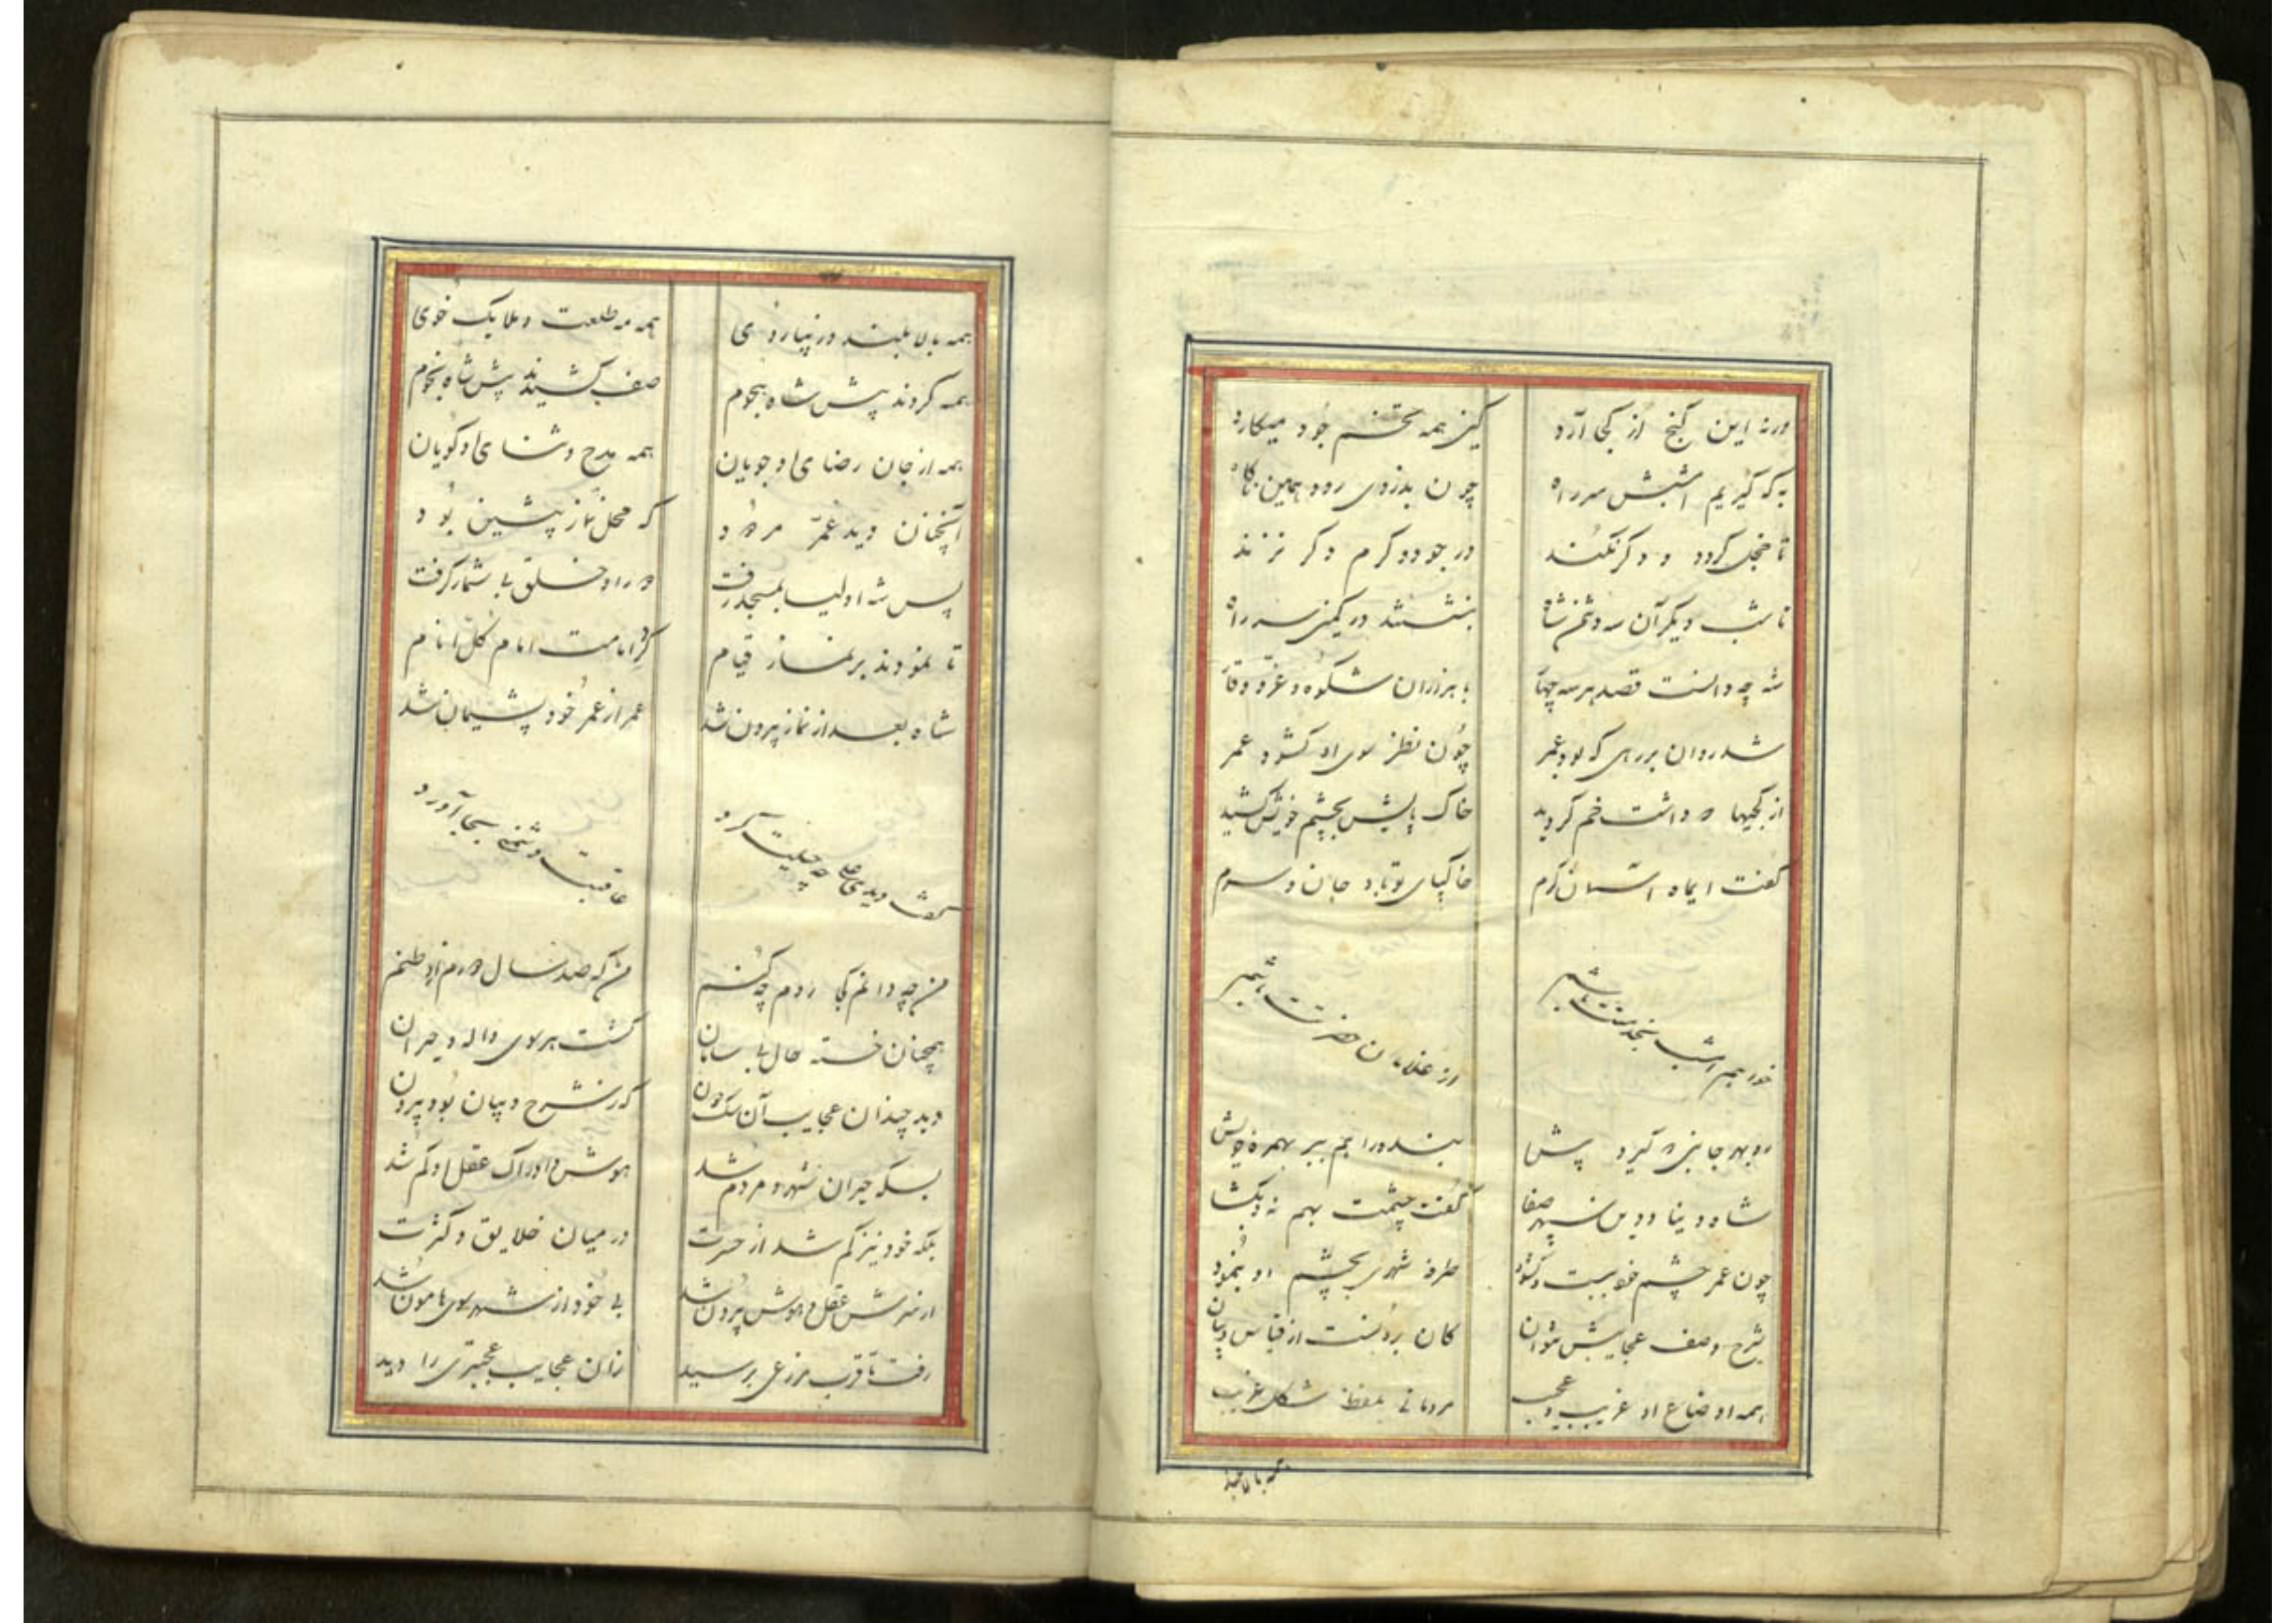 ورنه این گنج از کجا آرد کین همه تخم جود میکارد
که گیریم امشبش سر راه چون بدزدی رود همین ناگاه
تا خجل گردد و دگر نکند در جود و کرم دگر نزند
تا شب دیگر آن سه دشمن شاه بنشستند در کمین سر راه
شه چه دانست قصد هر سه با هزاران شکوه و عز و وقار
شد روان بر رهی که بود عمر چون نظر سوی او گشود عمر
از کجیها که داشت خم گردید خاک پایش بچشم خویش کشید
گفت ایماه آسمان کرم خاکپای تو باد جان و سرم
خواهم امشب بخدمتت باشم از غلامان حضرتت باشم
رو بهر جانبی که گیرد پیش بنده را هم ببر بهمره خویش
شاه دنیا و دین سپهر صفا گفت چشمت بهم نه و بگشا
چون عمر چشم خود ببست و گشود طرفه شهری بچشم او بنمود
شرح وصف عجایبش نتوان کان برونست از قیاس و بیان
همه اوضاع او غریب و عجب مردمانی شکل غریب
همه بالا بلند
همه بالا بلند و زیبا روی همه مه طلعت و ملایک خوی
همه کردند پیش شاه هجوم صف کشیدند پیش شاه نجوم
همه از جان رضای او جویان همه مدح و ثنای او گویان
آنچنان دید عمر که محل نماز پیشین بود
پس شه اولیا بمسجد رفت خلق بی شمار گرفت
تا نمودند بر نماز قیام کرد امامت امام کل انام
شاه بعد از نماز بیرون شد عمر از عمر خود پشیمان شد
گفت دیدی علی چه حیلت کرد عاقبت دشمنی بجا آورد
من چه دانم کجا روم چه کنم من که صد سال دورم از وطنم
همچنان خسته حال بی سامان گشت هر سوی واله و حیران
دید چندان عجایب آن سگ دون کز شرح و بیان بود بیرون
بسکه حیران شهر و مردم شد هوش و ادراک عقل او گم شد
بلکه خود نیز گم شد از حسرت در میان خلایق و کثرت
از سرش عقل و هوش بیرون شد بی خود از شهر سوی هامون شد
رفت تا قرب مزرعی برسید زان عجایب عجبتری را دید